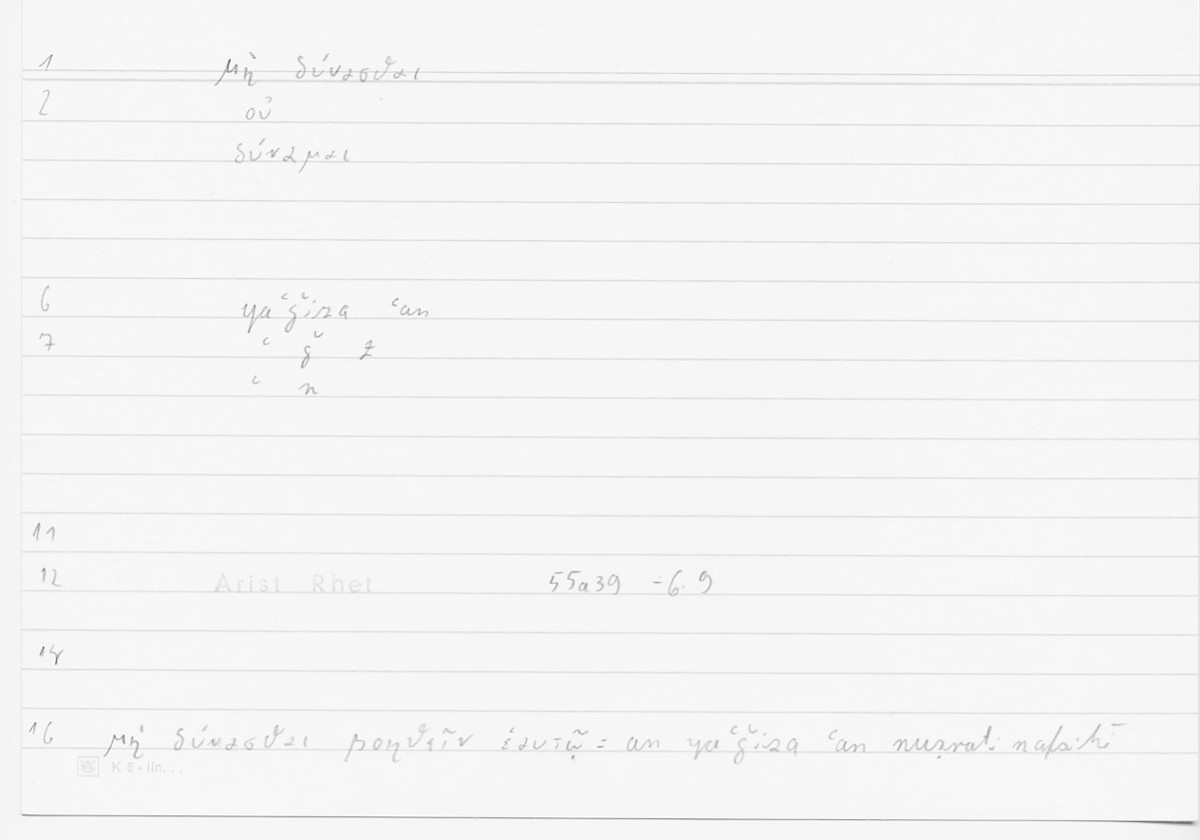 1 μὴ δύνασθαι
2 οὐ
δύναμαι
6 yaʿǧiza ʿan
7 ʿ ǧ z
ʿ n
11
12 Arist Rhet 55a39 =6.9
14
16 μὴ δύνασθαι βοηθεῖν ἑαυτῷ = an yaʿǧiza ʿan nuṣrati nafsihī
K 5 - lin...